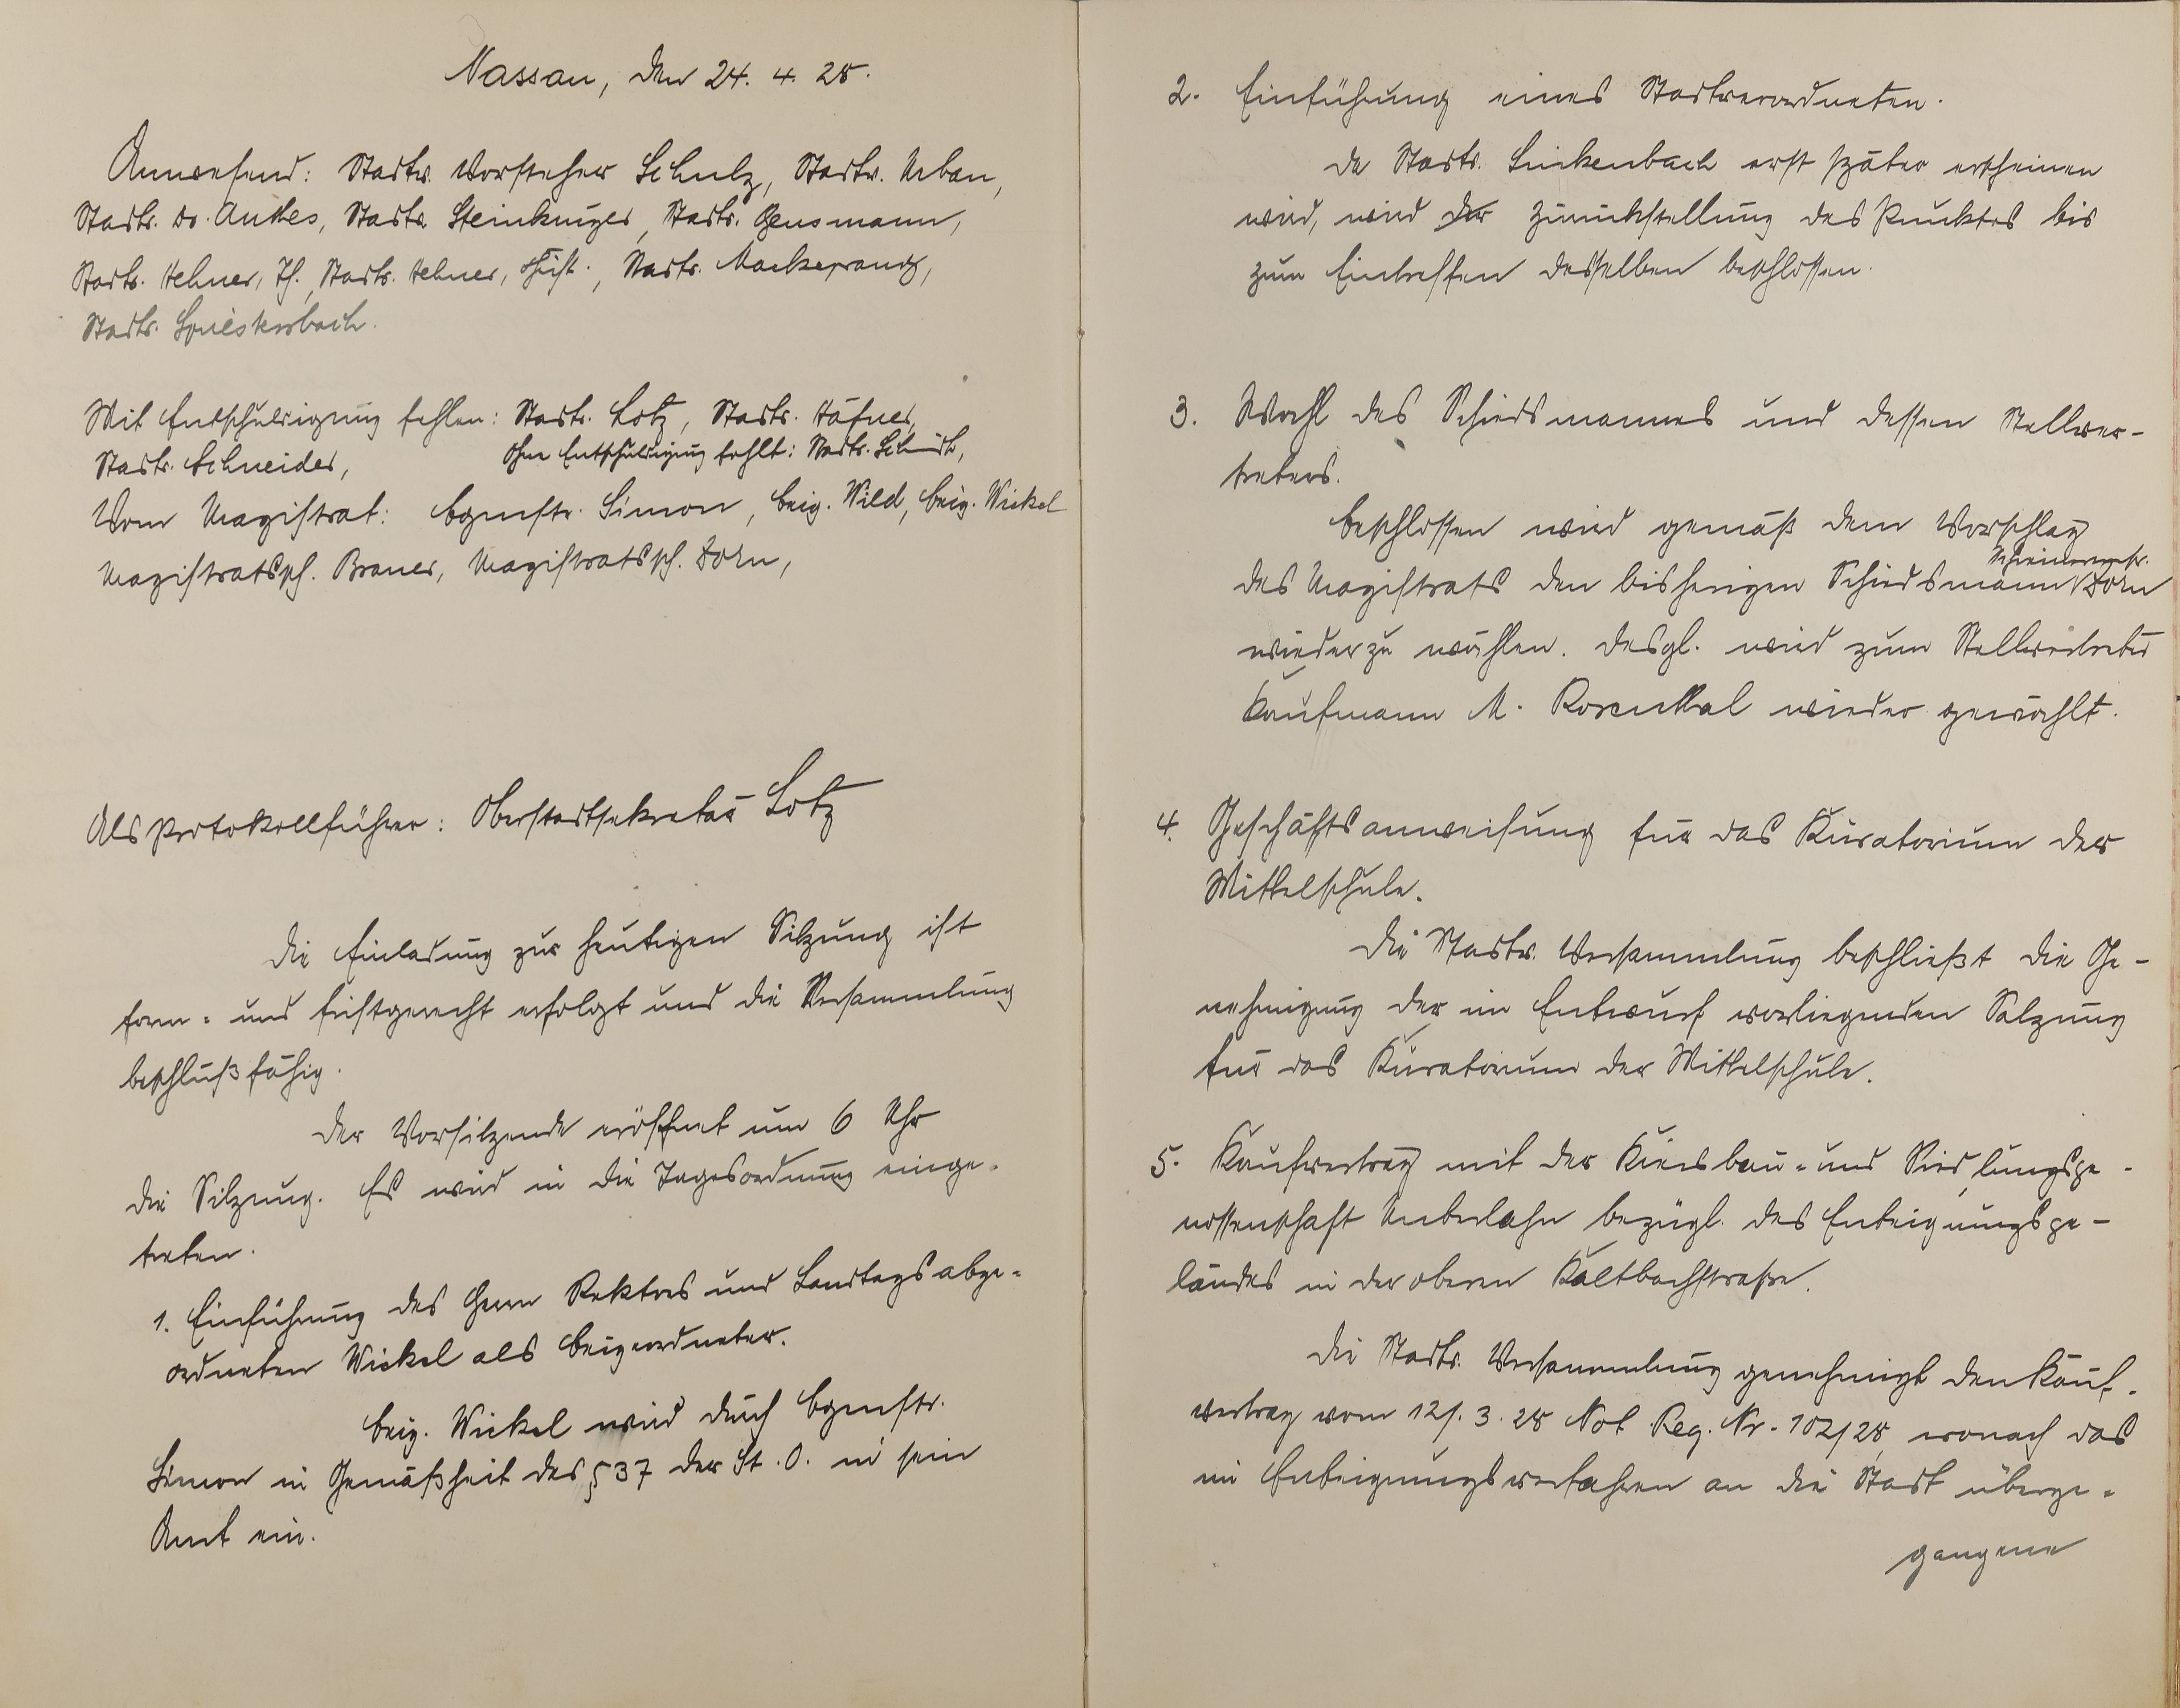 Nassau, den 24. 4. 28.
Anwesend: Stadtv. Vorsteher Schulz, Stadtv. Urban,
Stadtv. Dr. Anthes, Stadtv. Steinkrüger, Stadtv. Gensmann,
Stadtv. Hehner, Th., Stadtv. Hehner, Chist., Stadtv. Mackeprang,
Stadtv. Spriestersbach.
Mit Entschuldigung fehlen: Stadtv. Lotz, Stadtv. Häfner,
Stadtv. Schneider, Ohne Entschuldigung fehlt: Stadtv. Schmidt,
Vom Magistrat: Bgmstr. Simon, Beig. Wild, Beig. Wickel
Magistratssch. Braner, Magistratssch. Dorn,
Als Protokollführer: Oberstadtsekretär Lotz
Die Einladung zur heutigen Sitzung ist
form- und fristgerecht erfolgt und die Versammlung
beschlußfähig.
Der Vorsitzende eröffnet um 6 Uhr
die Sitzung. Es wird in die Tagesordnung einge-
treten.
1. Einführung des Herrn Rektors und Landtagsabge-
ordneten Wickel als Beigeordneter.
Beig. Wickel wird durch Bgmstr.
Simon in Gemäßheit des § 37 der St. O. in sein
Amt ein.
2. Einführung eines Stadtverordneten.
Da Stadtv. Linkenbach erst später erscheinen
wird, wird der Zurückstellung des Punktes bis
zum Eintreffen desselben beschlossen.
3. Wahl des Schiedsmannes und dessen Stellver-
treters.
Beschlossen wird gemäß dem Vorschlag
des Magistrats den bisherigen Schiedsmann Schreinermstr. Dorn
wieder zu wählen. Desgl. wird zum Stellvertreter
Kaufmann M. Rosenthal wieder gewählt.
4. Geschäftsanweisung für das Kuratorium der
Mittelschule.
Die Stadtv. Versammlung beschließt die Ge-
nehmigung der im Entwurf vorliegenden Satzung
für das Kuratorium der Mittelschule.
5. Kaufvertrag mit der Kreisbau- und Siedlungsge-
nossenschaft Unterlahn bezügl. des Enteignungsge-
ländes in der oberen Kaltbachstraße.
Die Stadtv. Versammlung genehmigt den Kauf-
vertrag vom 12/. 3. 28 Not. Reg. Nr. 102/28, wonach das
im Enteignungsverfahren an die Stadt überge-
gangene